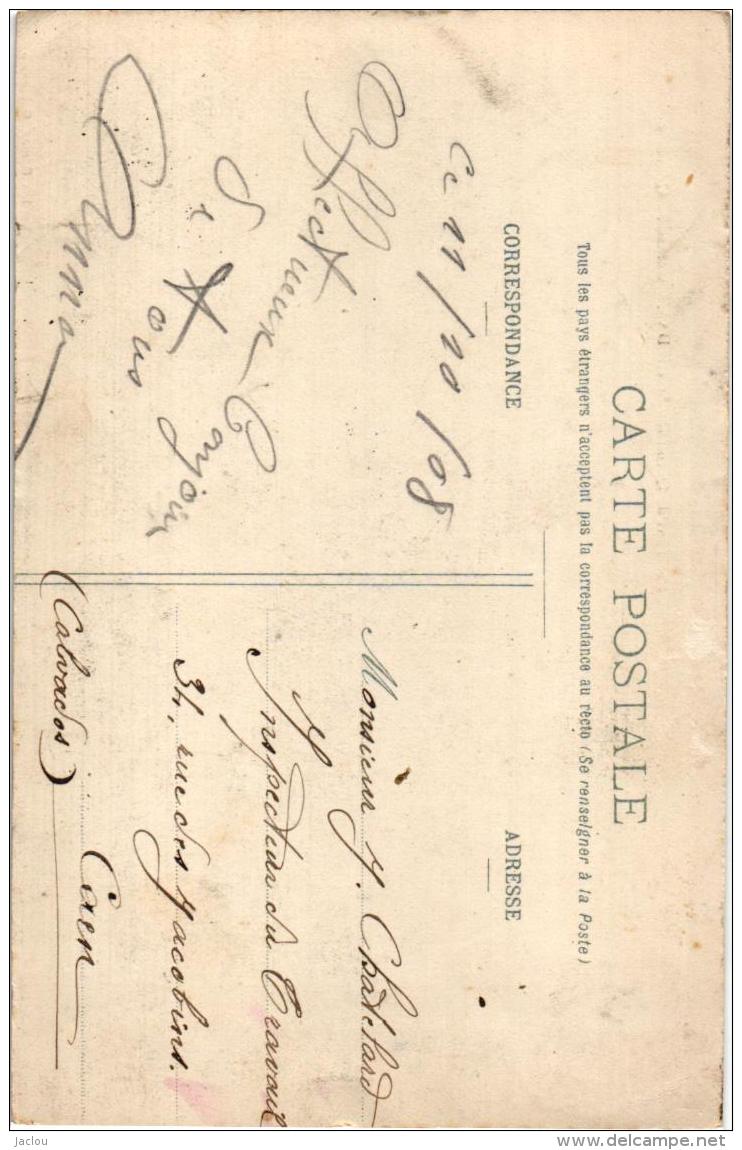 CARTE POSTALE
Tous les pays étrangers n'acceptent pas la correspondance au recto (Se renseigner à la Poste)
CORRESPONDANCE
Ce 11/10/08
Affectueux
de tous
Anna
ADRESSE
Monsieur J. Chatelard
Inspecteur du Travail
34, rue des Jacobins.
Caen
(Calvados)
jaclou
www.delcampe.net